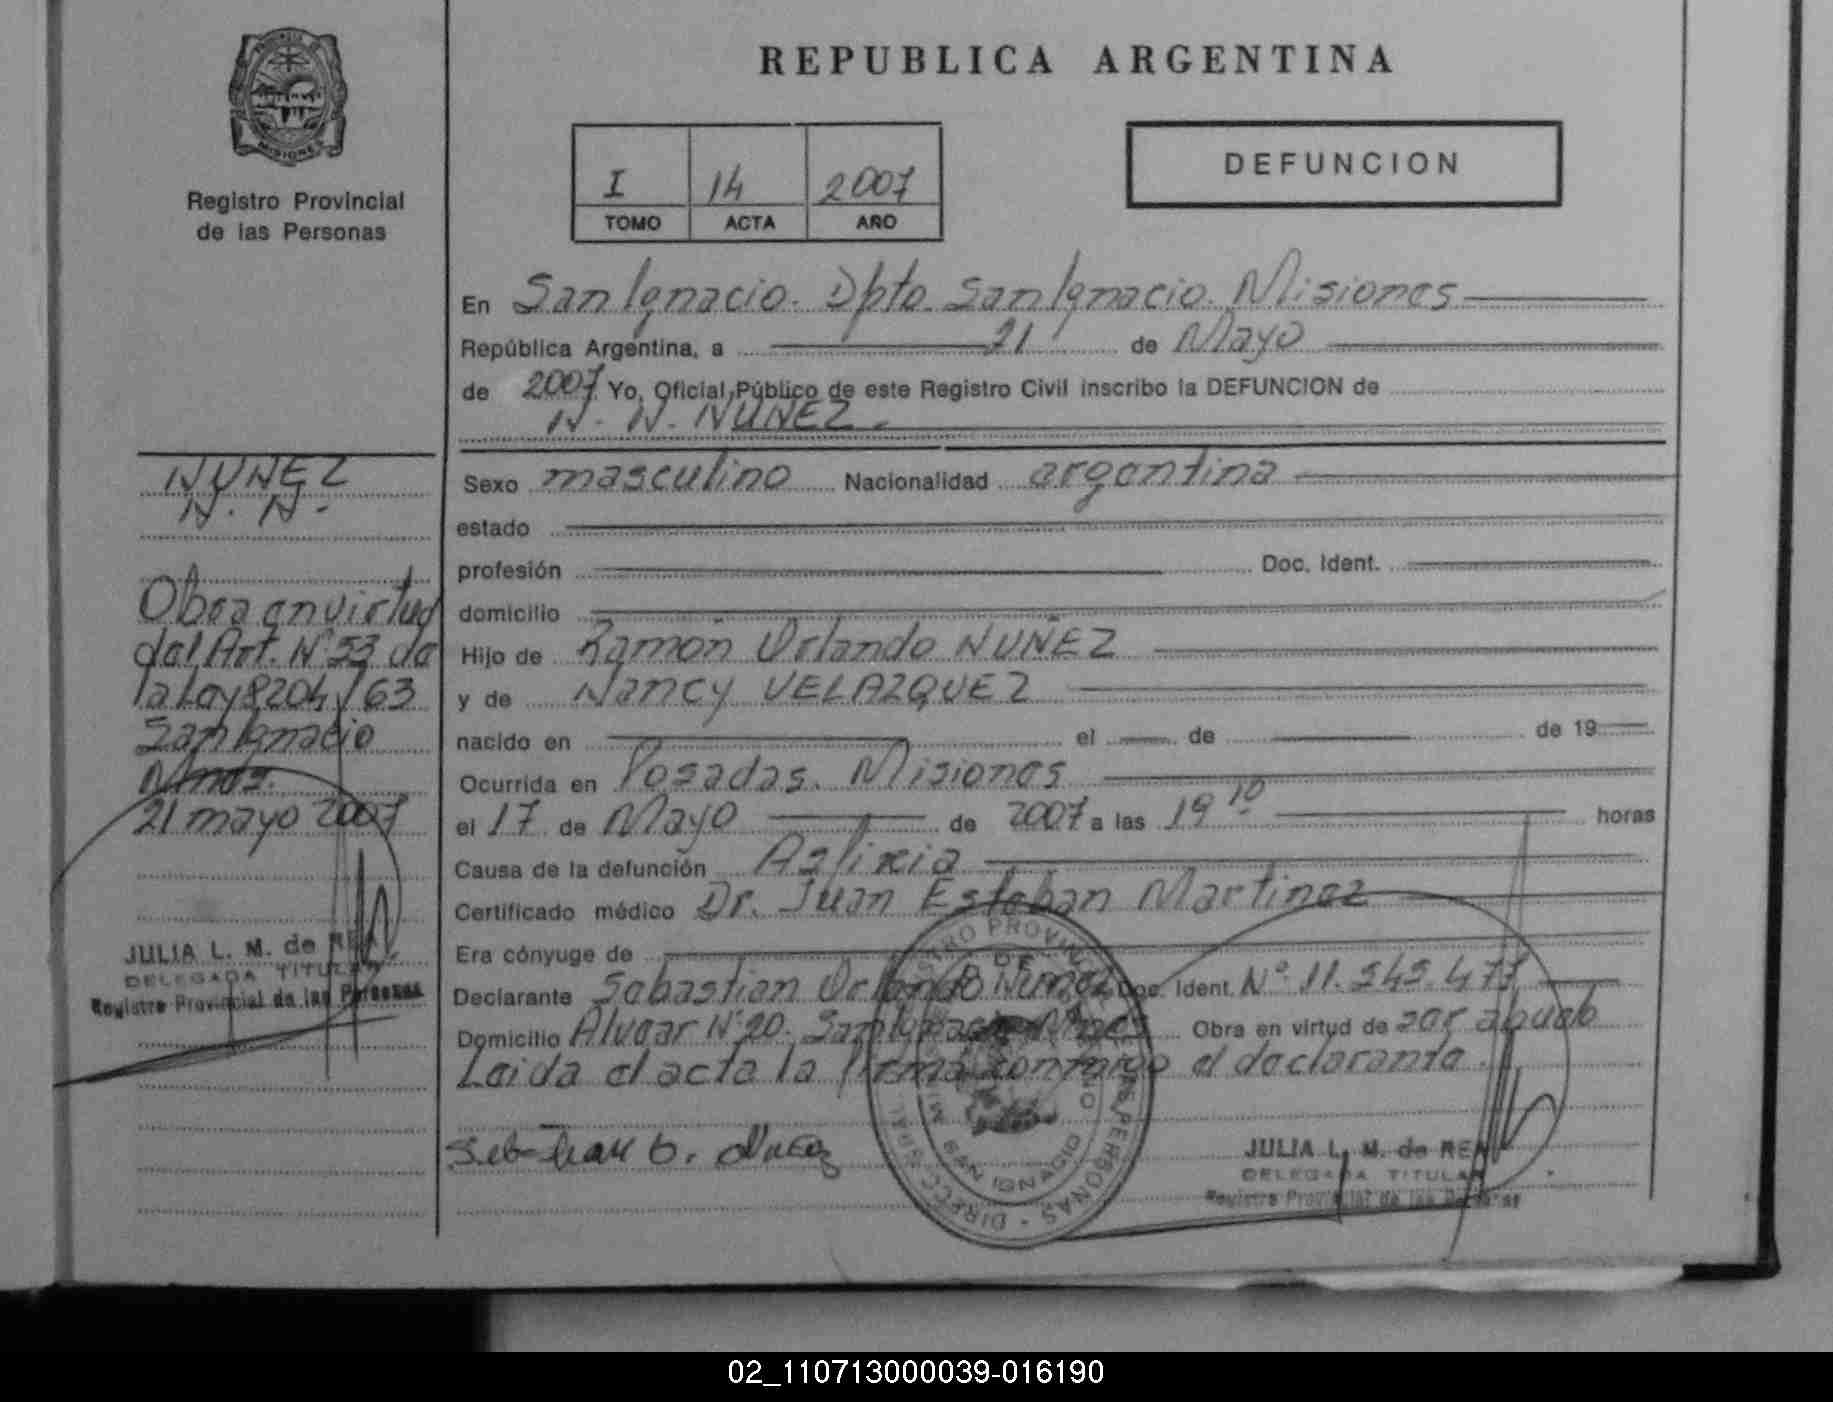 PROVINCIA DE
MISIONES
Registro Provincial
de las Personas
REPUBLICA ARGENTINA
I 14 2007
TOMO ACTA AÑO
DEFUNCION
En San Ignacio. Dpto San Ignacio. Misiones
República Argentina, a 21 de Mayo
de 2007 Yo, Oficial Público de este Registro Civil inscribo la DEFUNCION de
N. N. NUÑEZ.
Sexo masculino Nacionalidad argentina
estado
profesión Doc. Ident.
domicilio
Hijo de Ramón Orlando NUÑEZ
y de Nancy VELAZQUEZ
nacido en el de de 19
Ocurrida en Posadas. Misiones
el 17 de Mayo de 2007 a las 19 10 horas
Causa de la defunción Asfixia
Certificado médico Dr. Juan Esteban Martinez
Era cónyuge de
Declarante Sebastian Orlando Nuñez Doc. Ident. Nº 11.545.477
Domicilio Alvear Nº 20. San Ignacio Mnes Obra en virtud de ser abuelo
Leida el acta la firma conmigo el declarante.
Sebastian O. Nuñez
JULIA L. M. de REA
DELEGADA TITULAR
Registro Provincial de las Personas
NUÑEZ
N. N.
Obra en virtud
del Art. Nº 53 de
la Ley 8204/63
San Ignacio
Mnes.
21 mayo 2007
JULIA L. M. de REA
DELEGADA TITULAR
Registro Provincial de las Personas
REGISTRO PROVINCIAL DE LAS PERSONAS - DIRECC. GRAL.
SAN IGNACIO
02_110713000039-016190